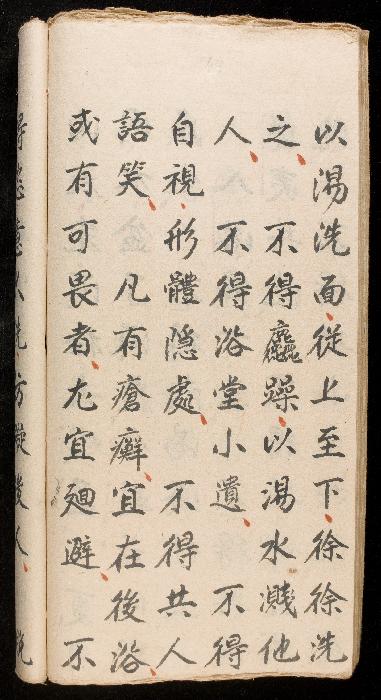 以湯洗面從上至下徐徐洗
之 不得麤躁以湯水濺他
人 不得浴堂小遺 不得
自視形體隱處 不得共人
語笑 凡有瘡癬宜在後浴
或有可畏者尢宜廻避不